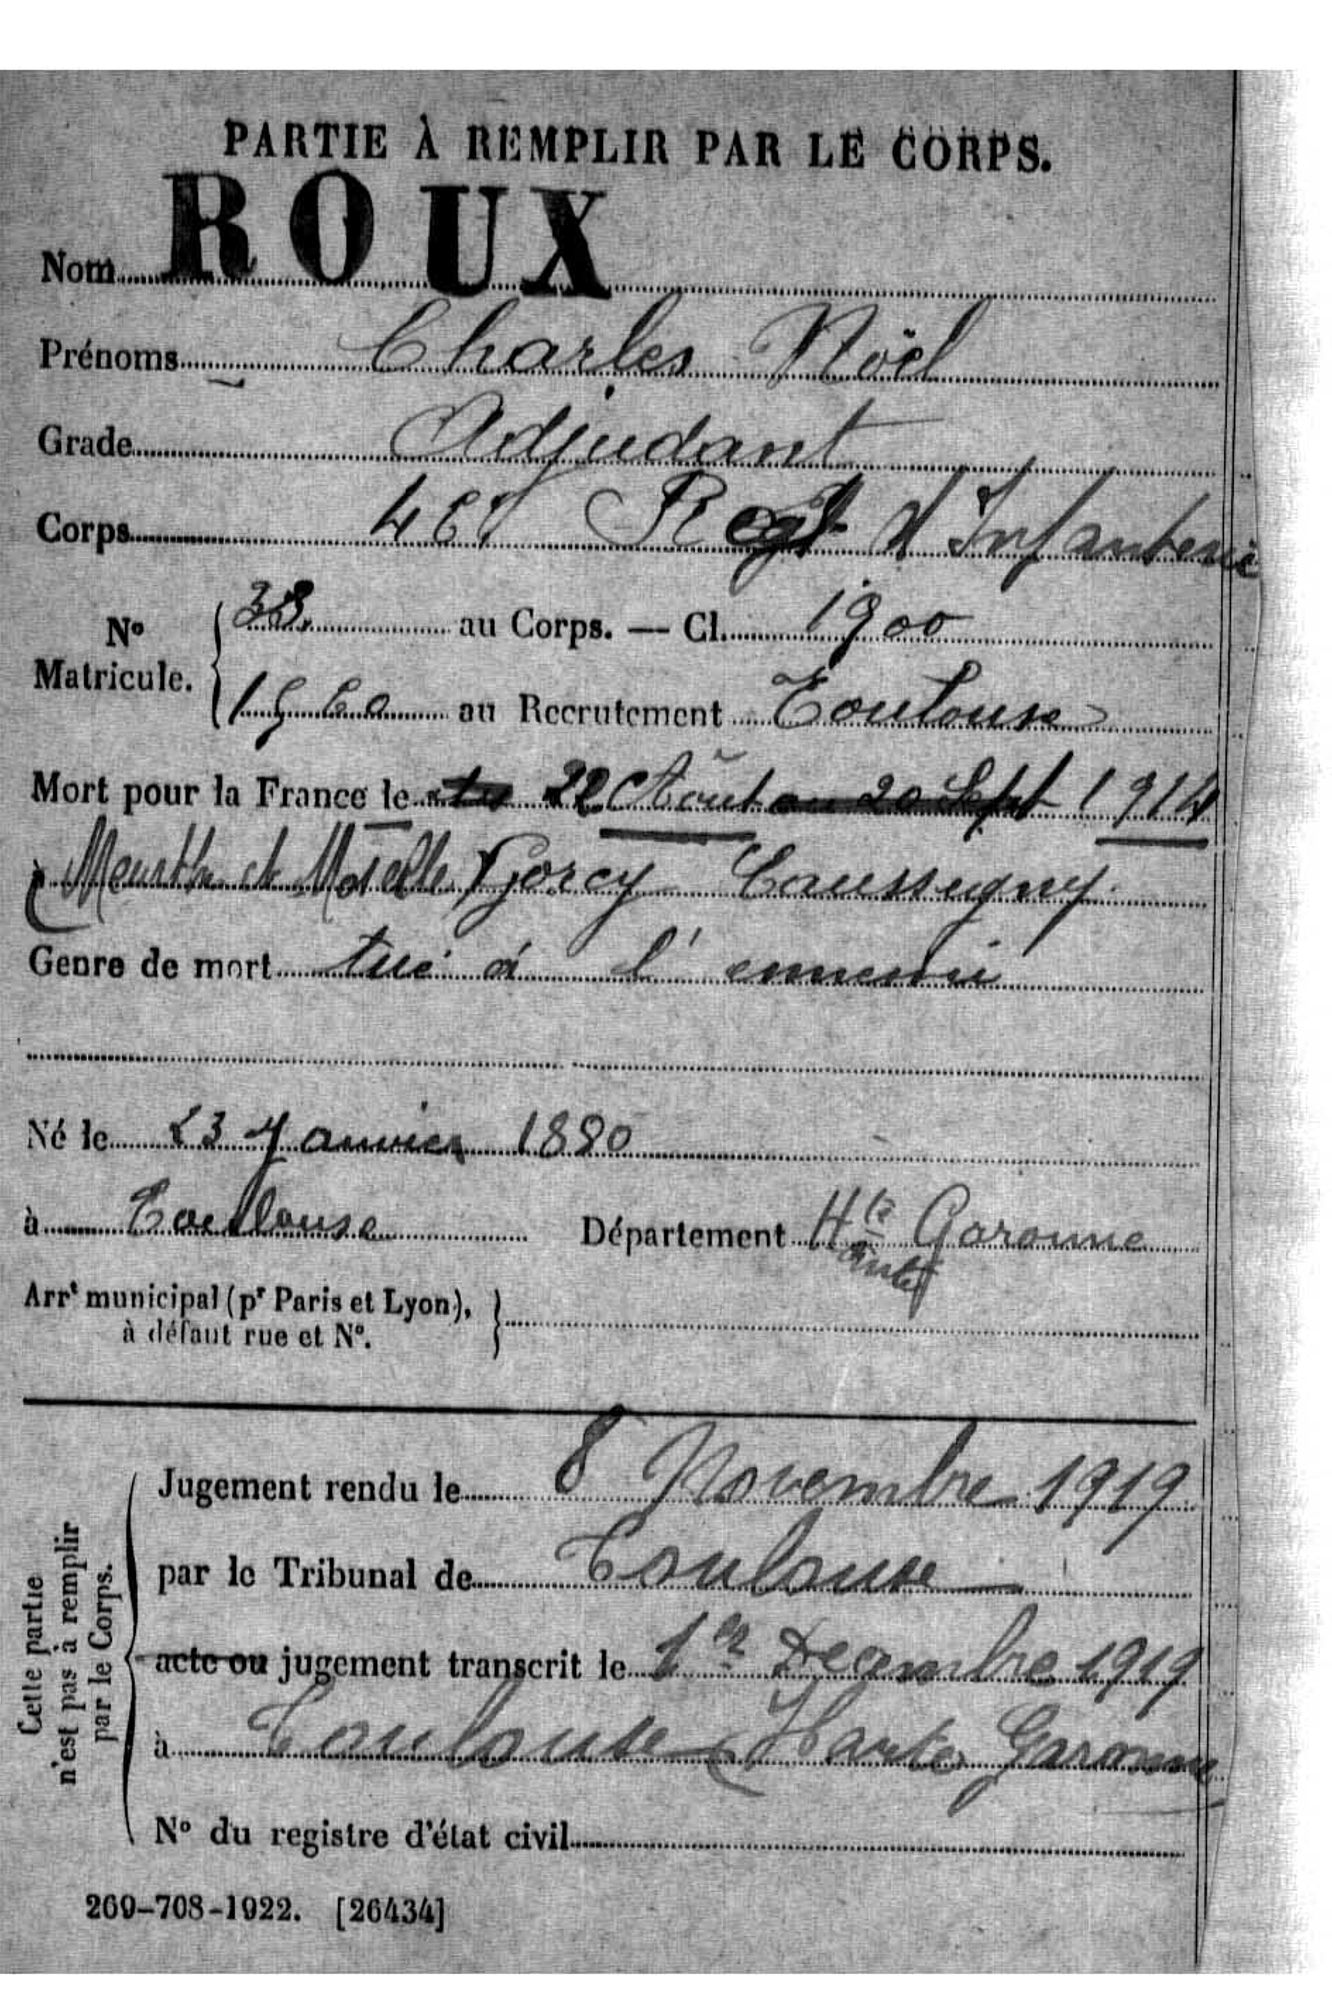 PARTIE À REMPLIR PAR LE CORPS.
Nom ROUX
Prénoms Charles Noël
Grade Adjudant
Corps 46e Regt d'Infanterie
No Matricule. { 38. au Corps. — Cl. 1900
1960 au Recrutement Toulouse
Mort pour la France le 22 Août ou 20 Sept 1914
à (Meurthe et Moselle) Gorcy Caussegny
Genre de mort tué à l'ennemi
Né le 23 Janvier 1880
à Toulouse Département Hte Garonne
aute
Arrt municipal (pr Paris et Lyon), }
à défaut rue et No.
Cette partie
n'est pas à remplir
par le Corps.
Jugement rendu le 8 Novembre 1919
par le Tribunal de Toulouse
acte ou jugement transcrit le 1er Decembre 1919
à Toulouse (Haute Garonne
No du registre d'état civil
269-708-1922. [26434]